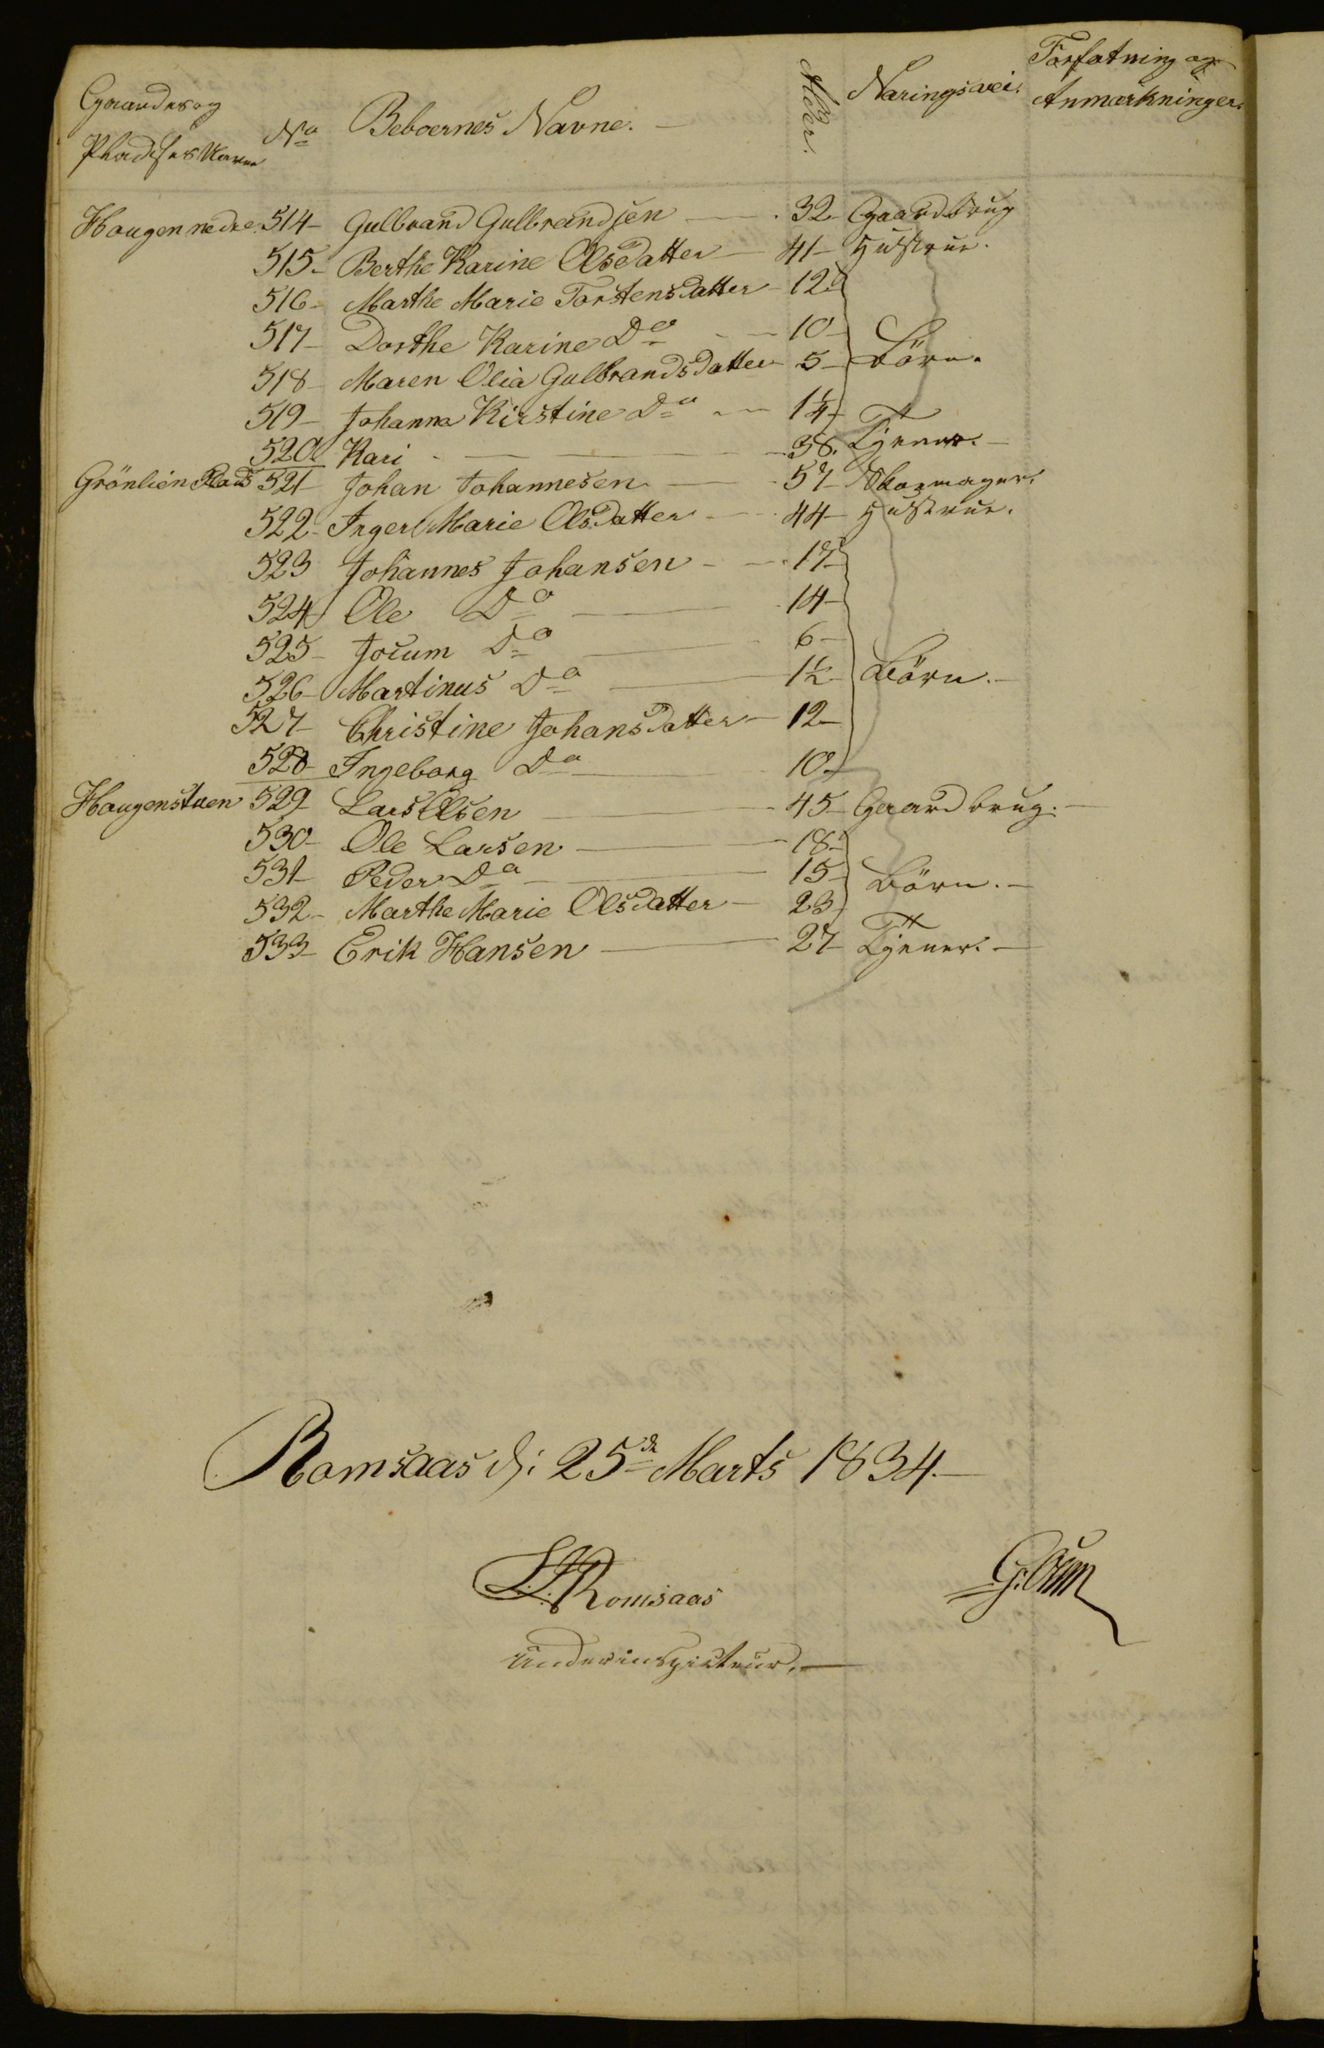 Gaardes og Pladses Navne No Beboernes Navne. Alder. Næringsvei. Forfatning og Anmærkninger.
Haugen nedre. 514 Gulbrand Gulbrandsen 32 Gaardbrug
515 Berthe Karine Olsdatter 41 Hustrue.
516 Marthe Marie Torstensdatter 12
517 Dorthe Karine Do 10
518 Maren Olia Gulbrandsdatter 5 Börn.
519 Johanna Kirstine Do 1/4
520 Kari 38. Tjener.
Grönlien Plads 521 Johan Johannesen 57 Skoemager.
522 Inger Marie Olsdatter 44 Hustrue.
523 Johannes Johansen 17
524 Ole Do 14
525 Jocum Do 6
526 Martinus Do 1/2 Börn.
527 Christine Johansdatter 12
528 Ingeborg Do 10
Haugenstuen 529 Lars Olsen 45 Gaardbrug.
530 Ole Larsen 18
531 Peder Do 15 Börn.
532 Marthe Marie Olsdatter 23
533 Erik Hansen 27 Tjener.
Romsaas d: 25de Marts 1834.
L. Romsaas
Underinspicteur.